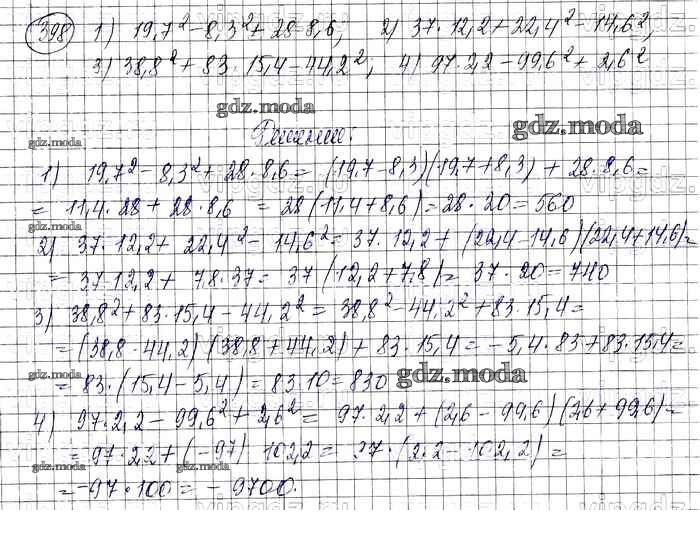 398 1) 19,7² - 8,3² + 28·8,6; 2) 37·12,2 + 22,4² - 14,6²;
3) 38,8² + 83·15,4 - 44,2²; 4) 97·2,2 - 99,6² + 2,6²
gdz.moda
gdz.moda
gdz.moda
Решение.
1) 19,7² - 8,3² + 28·8,6 = (19,7 - 8,3)(19,7 + 8,3) + 28·8,6 =
= 11,4·28 + 28·8,6 = 28(11,4 + 8,6) = 28·20 = 560
gdz.moda
2) 37·12,2 + 22,4² - 14,6² = 37·12,2 + (22,4 - 14,6)(22,4 + 14,6) =
= 37·12,2 + 7,8·37 = 37(12,2 + 7,8) = 37·20 = 740
3) 38,8² + 83·15,4 - 44,2² = 38,8² - 44,2² + 83·15,4 =
= (38,8 - 44,2)(38,8 + 44,2) + 83·15,4 = -5,4·83 + 83·15,4 =
gdz.moda
gdz.moda
= 83·(15,4 - 5,4) = 83·10 = 830
4) 97·2,2 - 99,6² + 2,6² = 97·2,2 + (2,6 - 99,6)(2,6 + 99,6) =
= 97·2,2 + (-97) 102,2 = 97·(2,2 - 102,2) =
gdz.moda gdz.moda
= -97·100 = -9700.